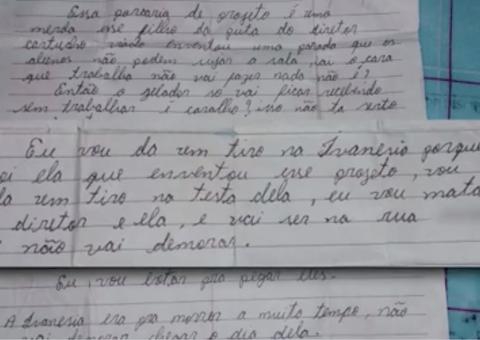 Essa porcaria de projeto é uma
merda esse filho da puta do diretor
cartucho viado enventou uma parada que os
alunos não podem sujar a sala, vai o cara
que trabalha não vai fazer nada não é?
Então o zelador so vai ficar recebendo
sem trabalhar é caralho? isso não ta serto
Eu vou da um tiro na Ivanesia porque
oi ela que enventou esse projeto, vou
la um tiro na testa dela, eu vou mata
diretor e ela, e vai ser na rua
não vai demorar.
Eu, vou estar pra pegar eles.
A Ivanesia era pra morrer a muito tempo, não
vai demorar chegar o dia dela.